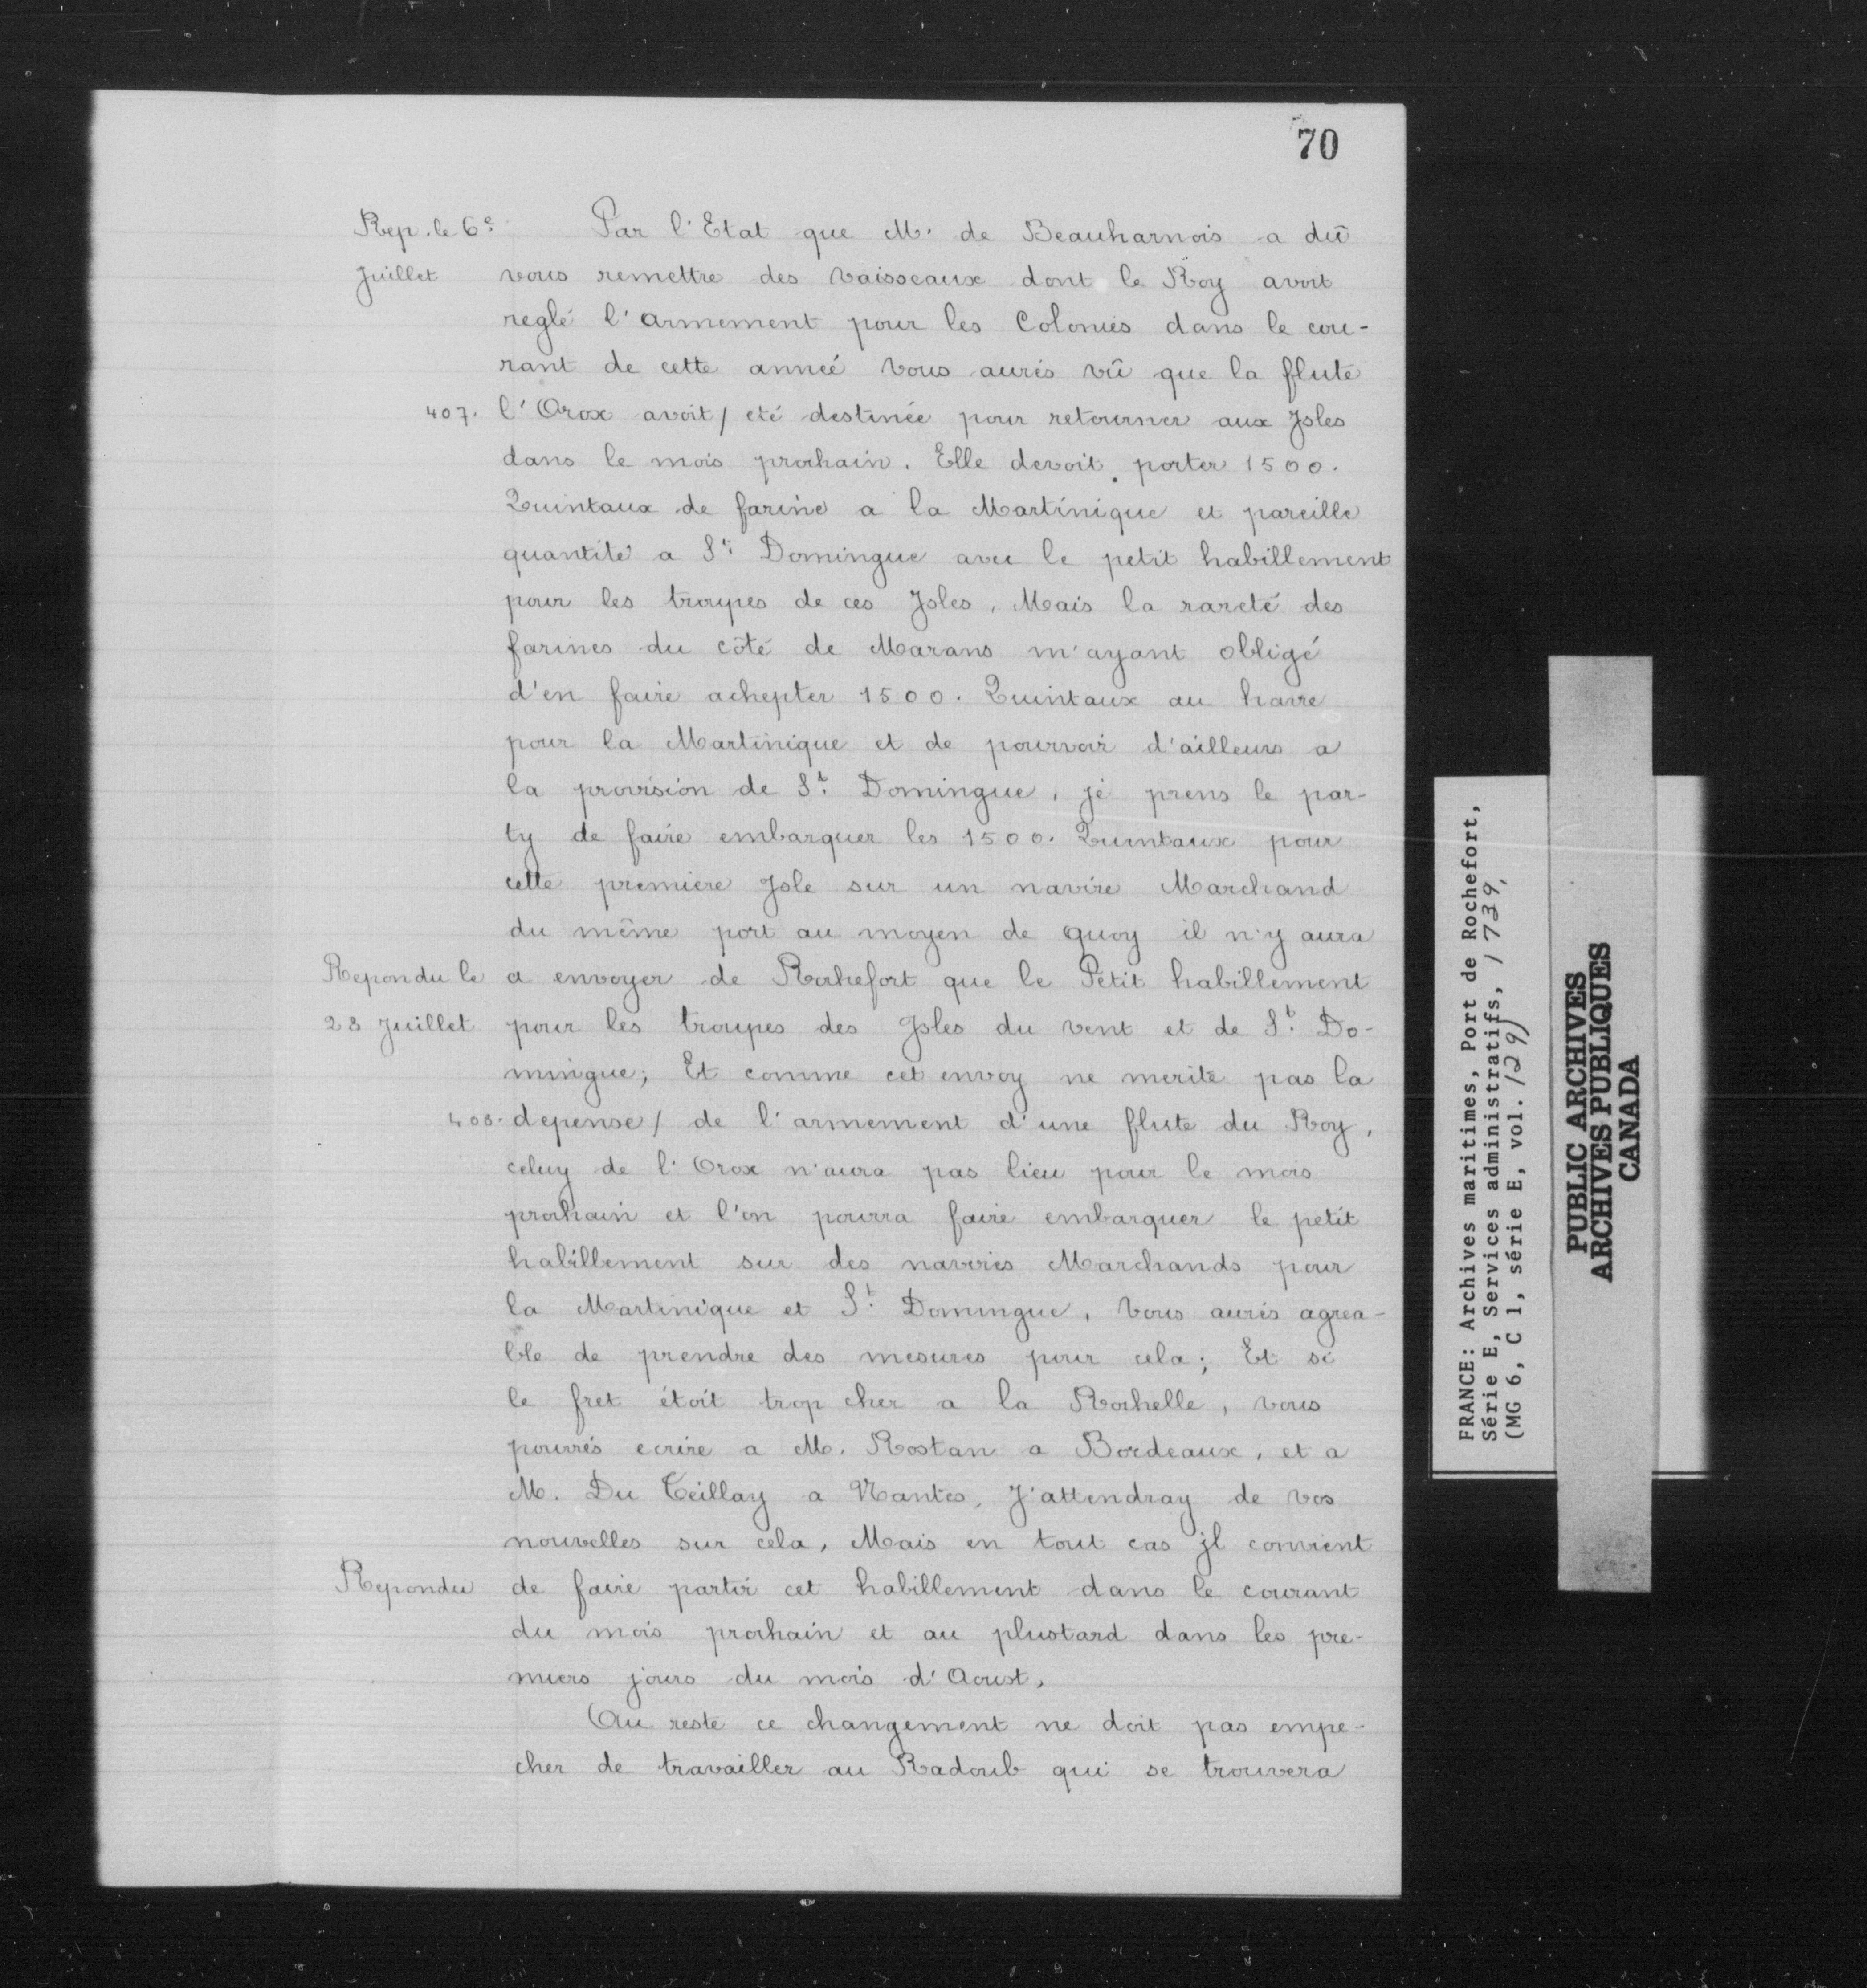 70
Rep. le 6e Par l'Etat que M. de Beauharnois a dû
Juillet vous remettre des vaisseaux dont le Roy avoit
reglé l'armement pour les Colonies dans le cou-
rant de cette année vous aurés vû que la flute
407. l'Orox avoit / eté destinée pour retourner aux Jsles
dans le mois prochain. Elle devoit porter 1500.
Quintaux de farine a la Martinique et pareille
quantité a St. Domingue avec le petit habillement
pour les troupes de ces Jsles. Mais la rareté des
farines du côté de Marans m'ayant obligé
d'en faire achepter 1500. Quintaux au havre
pour la Martinique et de pourvoir d'ailleurs a
la provision de St. Domingue, je prens le par-
ty de faire embarquer les 1500. Quintaux pour
cette premiere Jsle sur un navire Marchand
du même port au moyen de quoy il n'y aura
Repondu le a envoyer de Rochefort que le Petit habillement
28 Juillet pour les troupes des Jsles du vent et de St. Do-
mingue; Et comme cet envoy ne merite pas la
408. depense / de l'armement d'une flute du Roy,
celuy de l'Orox n'aura pas lieu pour le mois
prochain et l'on pourra faire embarquer le petit
habillement sur des navires Marchands pour
la Martinique et St. Domingue, vous aurés agrea-
ble de prendre des mesures pour cela; Et si
le fret étoit trop cher a la Rochelle, vous
pourrés ecrire a M. Rostan a Bordeaux, et a
M. Du Teillay a Nantes, J'attendray de vos
nouvelles sur cela, Mais en tout cas jl convient
Repondu de faire partir cet habillement dans le courant
du mois prochain et au plustard dans les pre-
miers jours du mois d'Aoust,
Au reste ce changement ne doit pas empe-
cher de travailler au Radoub qui se trouvera
FRANCE: Archives maritimes, Port de Rochefort,
Série E, Services administratifs, 1739,
(MG 6, C 1, série E, vol. 129)
PUBLIC ARCHIVES
ARCHIVES PUBLIQUES
CANADA